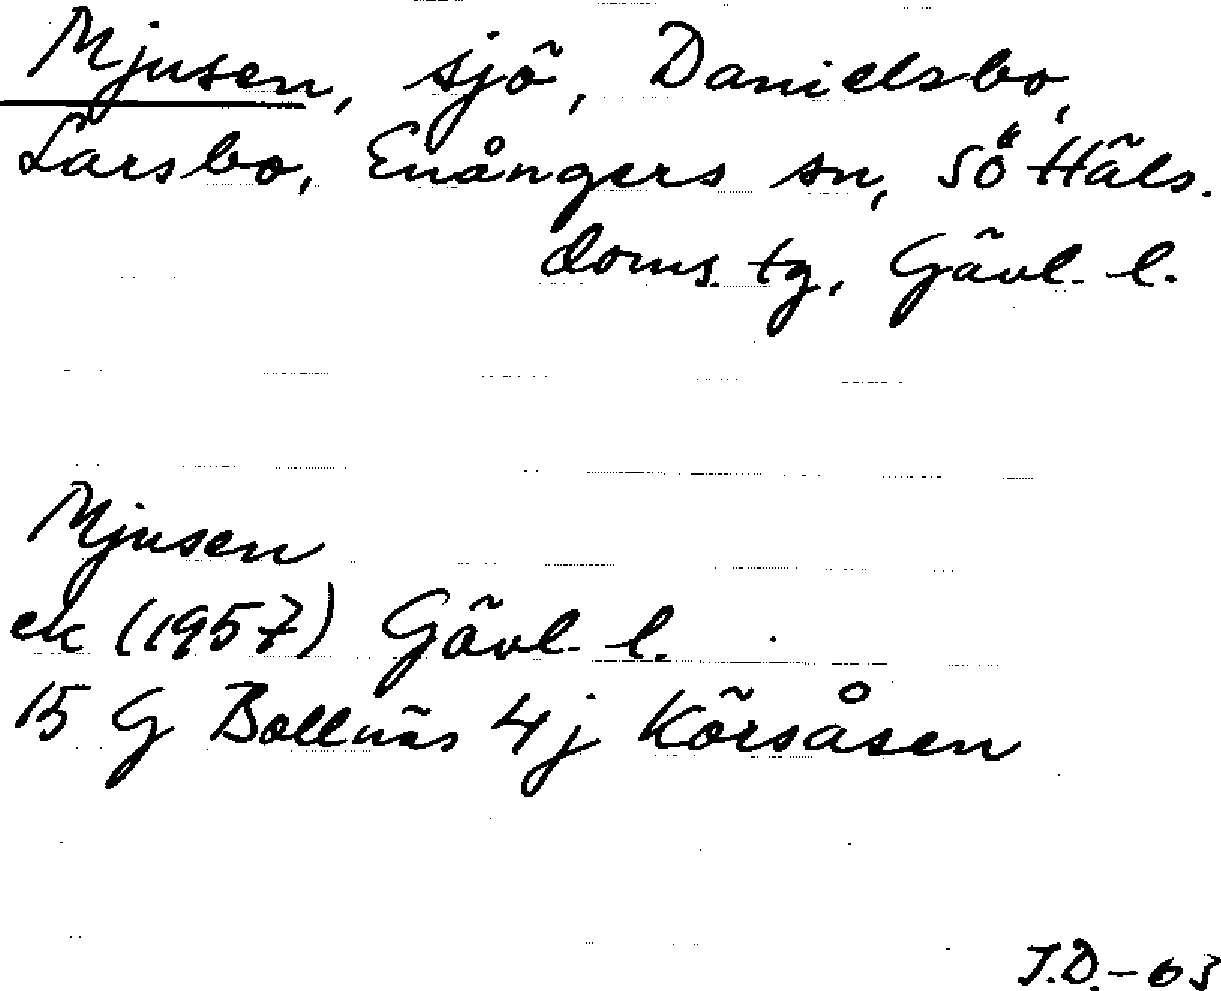 Mjusen, sjö, Danielsbo,
Larsbo, Enångers sn, Sö Häls.
doms. tg, Gävl. l.
Mjusen
ek (1957) Gävl. l.
15 G Bollnäs 4j Körsåsen
J.D.-63